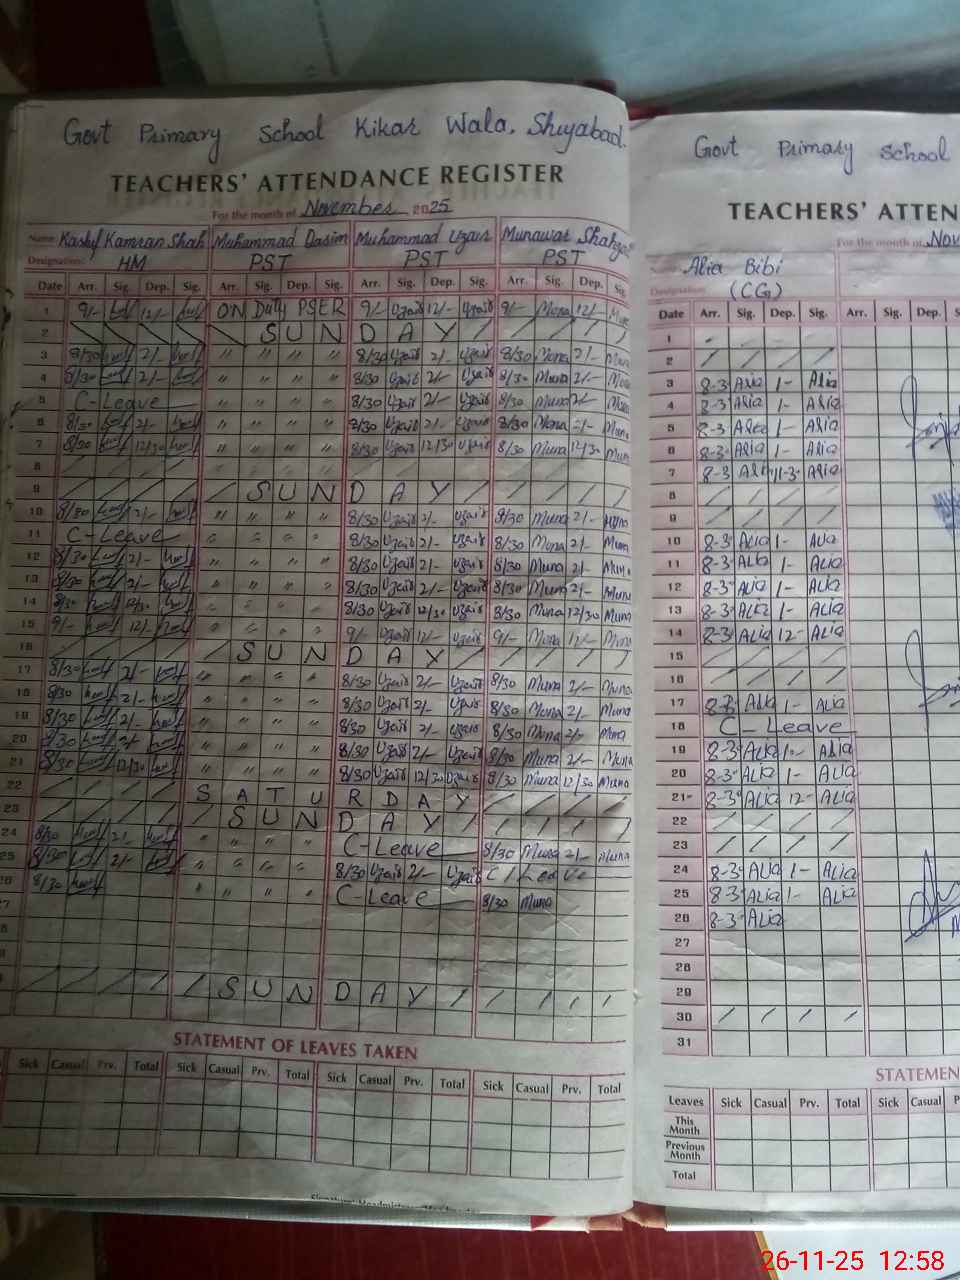 Govt Primary School Kikar Wala, Shujabad.
TEACHERS' ATTENDANCE REGISTER
For the month of November 2025
Name Kashif Kamran Shah Muhammad Qasim Muhammad Uzair Munawar
Designation: HM PST PST PST
Date Arr. Sig. Dep. Sig. Arr. Sig. Dep. Sig. Arr. Sig. Dep. Sig. Arr. Sig. Dep. Sig.
1 9/- 12/- ON Duty PSER 9/- Uzair 12/- Uzair 9/- Muna 12/-
2 SUNDAY
3 8/30 2/- " " " " 8/30 Uzair 2/- Uzair 8/30 Muna 2/- Muna
4 8/30 2/- " " " " 8/30 Uzair 2/- Uzair 8/30 Muna 2/- Muna
5 C-Leave " " " " 8/30 Uzair 2/- Uzair 8/30 Muna 2/- Muna
6 8/30 2/- " " " " 8/30 Uzair 2/- Uzair 8/30 Muna 2/- Muna
7 8/30 12/30 " " " " 8/30 Uzair 12/30 Uzair 8/30 Muna 12/30 Muna
8
9 SUNDAY
10 8/30 2/- " " " " 8/30 Uzair 2/- Uzair 8/30 Muna 2/- Muna
11 C-Leave " " " " 8/30 Uzair 2/- Uzair 8/30 Muna 2/- Muna
12 8/30 2/- " " " " 8/30 Uzair 2/- Uzair 8/30 Muna 2/- Muna
13 8/30 2/- " " " " 8/30 Uzair 2/- Uzair 8/30 Muna 2/- Muna
14 8/30 12/30 " " " " 8/30 Uzair 12/30 Uzair 8/30 Muna 12/30 Muna
15 9/- 12/- " " " " 9/- Uzair 12/- Uzair 9/- Muna 12/- Muna
16 SUNDAY
17 8/30 2/- " " " " 8/30 Uzair 2/- Uzair 8/30 Muna 2/- Muna
18 8/30 2/- " " " " 8/30 Uzair 2/- Uzair 8/30 Muna 2/- Muna
19 8/30 2/- " " " " 8/30 Uzair 2/- Uzair 8/30 Muna 2/- Muna
20 8/30 2/- " " " " 8/30 Uzair 2/- Uzair 8/30 Muna 2/- Muna
21 8/30 12/30 " " " " 8/30 Uzair 12/30 Uzair 8/30 Muna 12/30 Muna
22 SATURDAY
23 SUNDAY
24 8/30 2/- " " " " C-Leave 8/30 Muna 2/- Muna
25 8/30 2/- " " " " 8/30 Uzair 2/- Uzair C/Leave
26 8/30 " " " " C-Leave 8/30 Muna
SUNDAY
STATEMENT OF LEAVES TAKEN
Sick Casual Prv. Total Sick Casual Prv. Total Sick Casual Prv. Total Sick Casual Prv. Total
Govt Primary School
TEACHERS' ATTEN
For the month of Nov
Name Alia Bibi
Designation (CG)
Date Arr. Sig. Dep. Sig. Arr. Sig. Dep.
1
2
3 8-30 Alia 1- Alia
4 8-30 Alia 1- Alia
5 8-30 Alia 1- Alia
6 8-30 Alia 1- Alia
7 8-30 Alia 11-30 Alia
8
9
10 8-30 Alia 1- Alia
11 8-30 Alia 1- Alia
12 8-30 Alia 1- Alia
13 8-30 Alia 1- Alia
14 8-30 Alia 12- Alia
15
16
17 8-30 Alia 1- Alia
18 C-Leave
19 8-30 Alia 1- Alia
20 8-30 Alia 1- Alia
21 8-30 Alia 12- Alia
22
23
24 8-30 Alia 1- Alia
25 8-30 Alia 1- Alia
26 8-30 Alia
27
28
29
30
31
STATEMEN
Leaves Sick Casual Prv. Total Sick Casual
This Month
Previous Month
Total
26-11-25 12:58